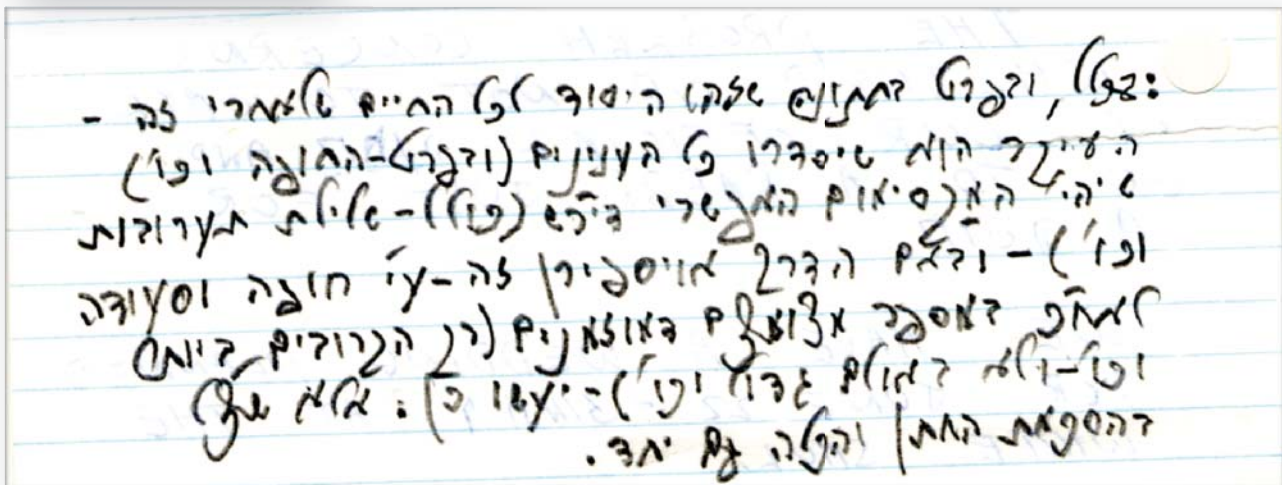 :בכלל, ובפרט בחתונה שזהו היסוד לכל החיים שלאחרי זה -
העיקר הוא שיסדרו כל הענינים (ובפרט-החופה וכו')
שיהי' המקסימום המאפשרי דיר"ש (כולל-שלילת תערובות
וכו') - ובאם הדרך אויספירן זה-ע"י חופה וסעודה
לאח"כ במספר מצומצם דמוזמנים (רק הקרובים ביותר)
וכו'-ולא באולם גדול וכו') - יעשו כן. אלא שצ"ל
בהסכמת החתן והכלה גם יחד.